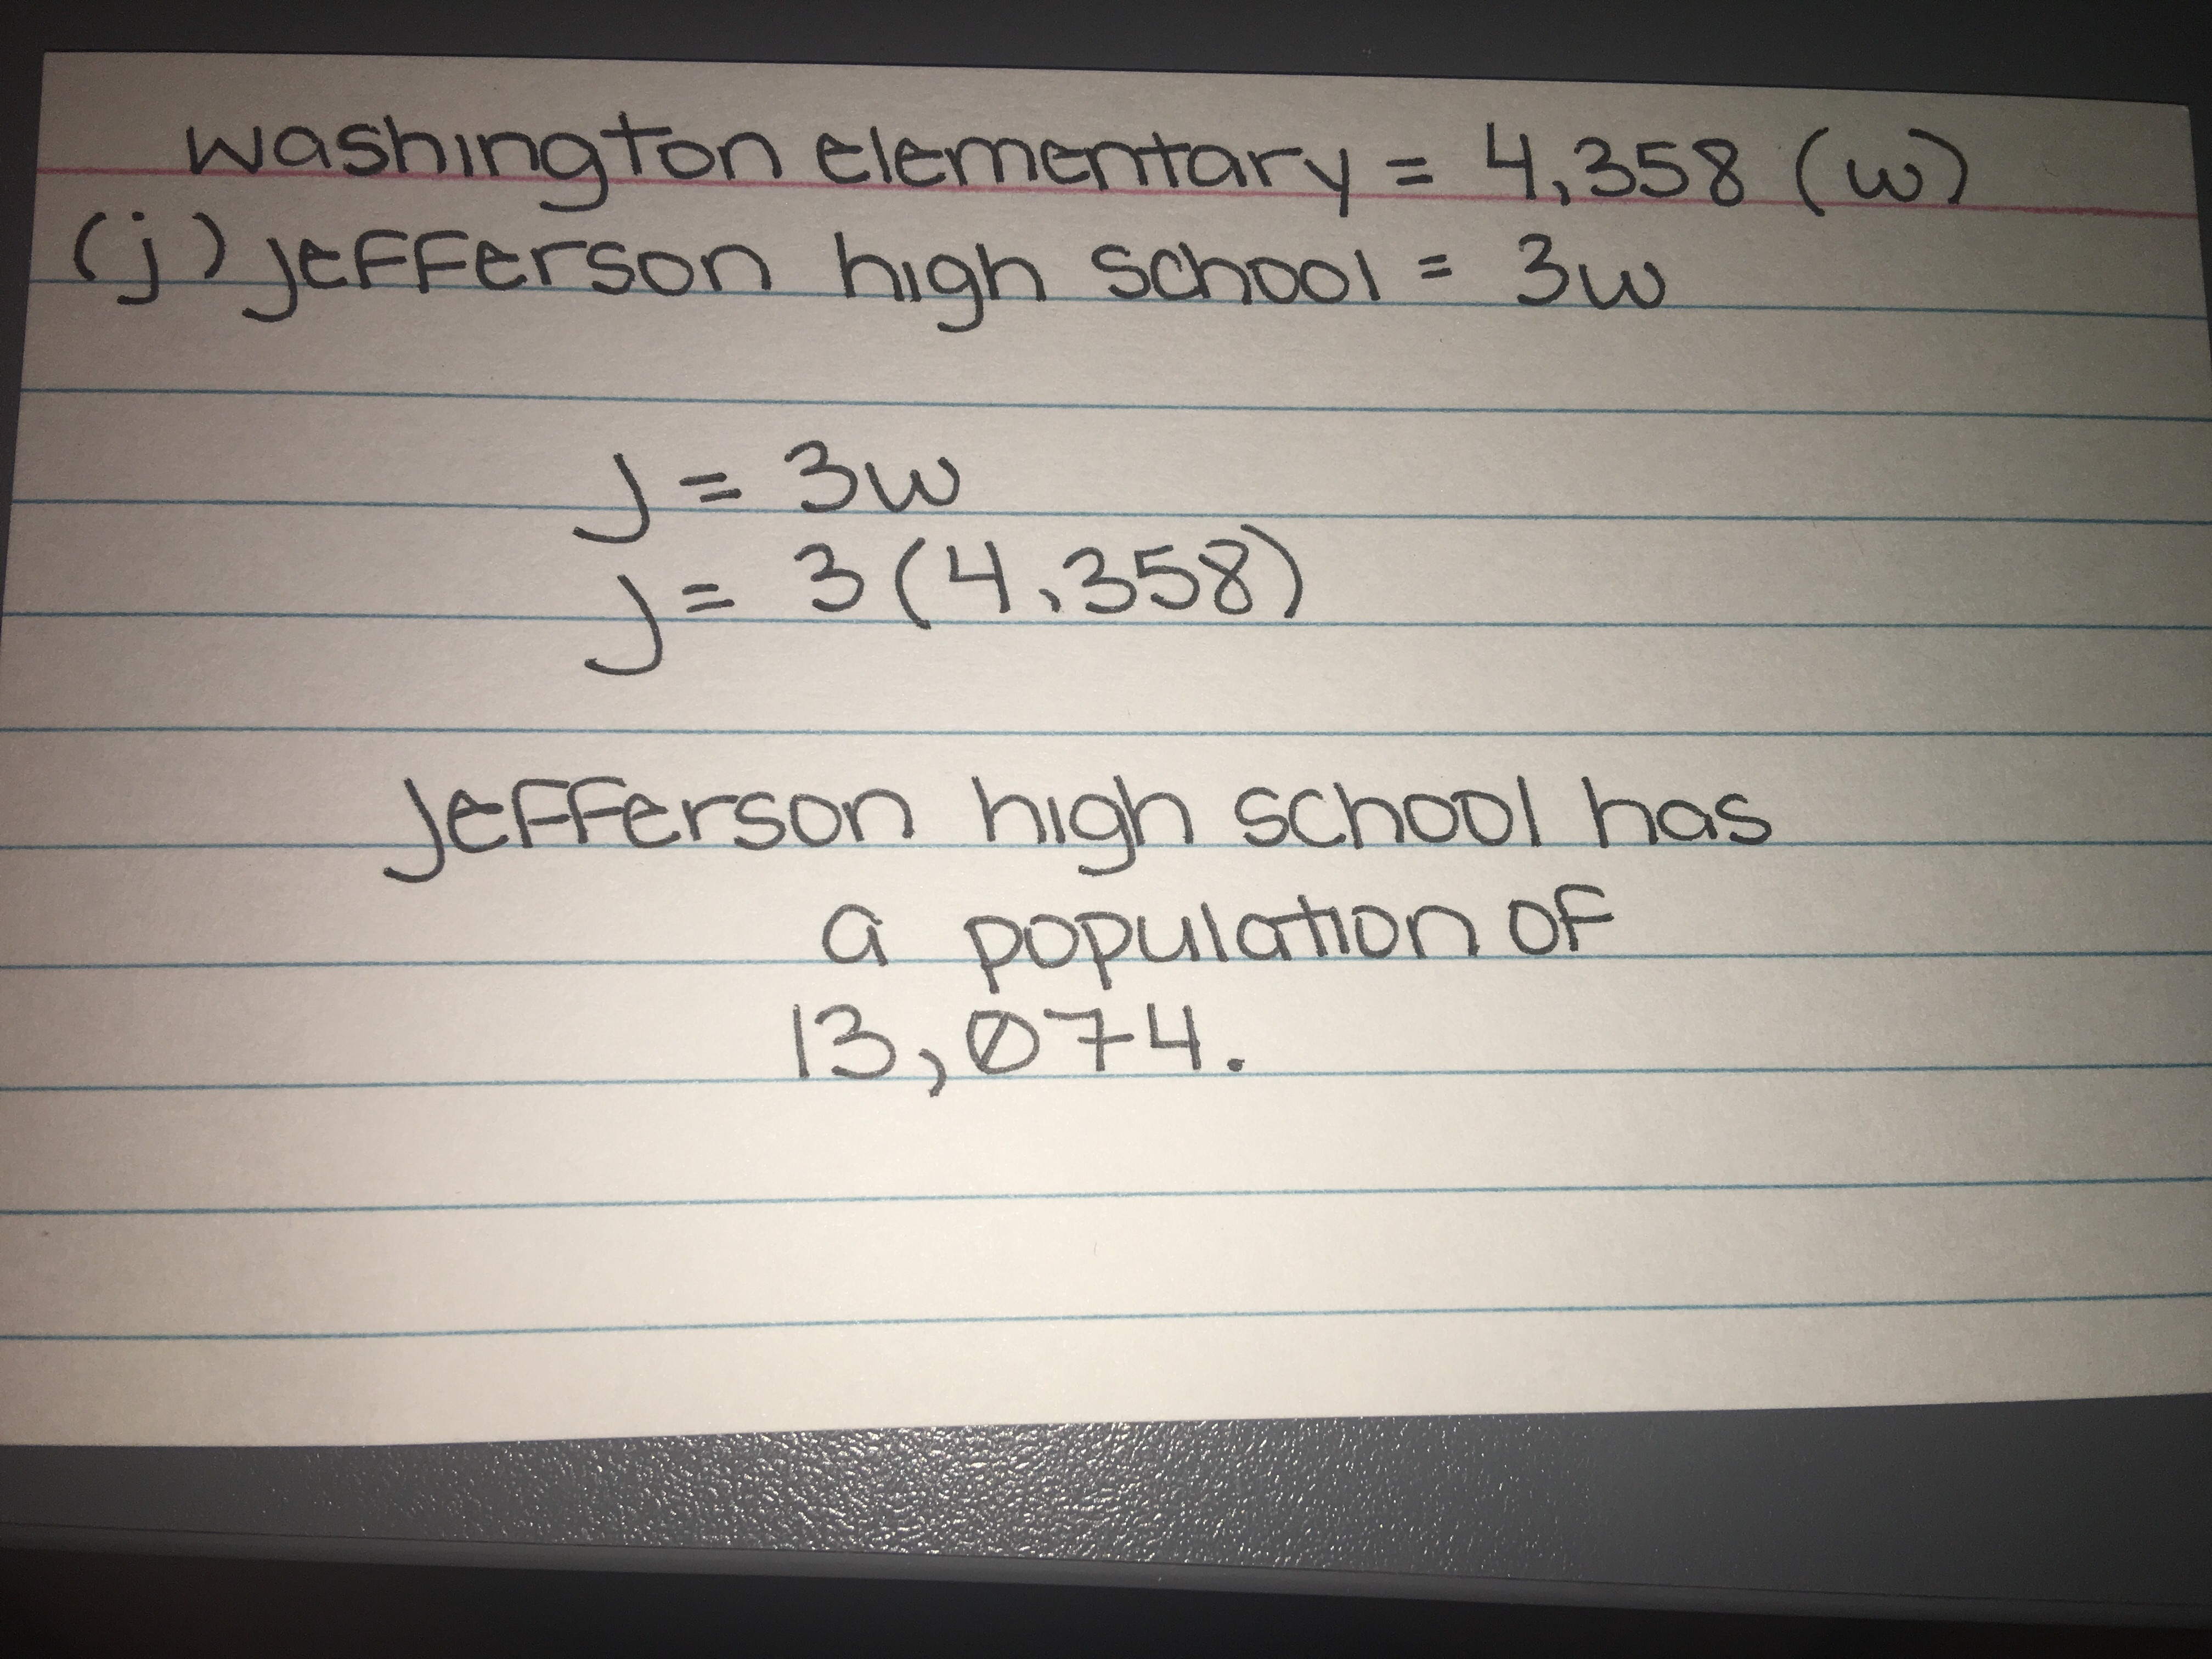 washington elementary = 4,358 (w)
(j) jefferson high school = 3w
j = 3w
j = 3(4,358)
jefferson high school has
a population of
13,074.